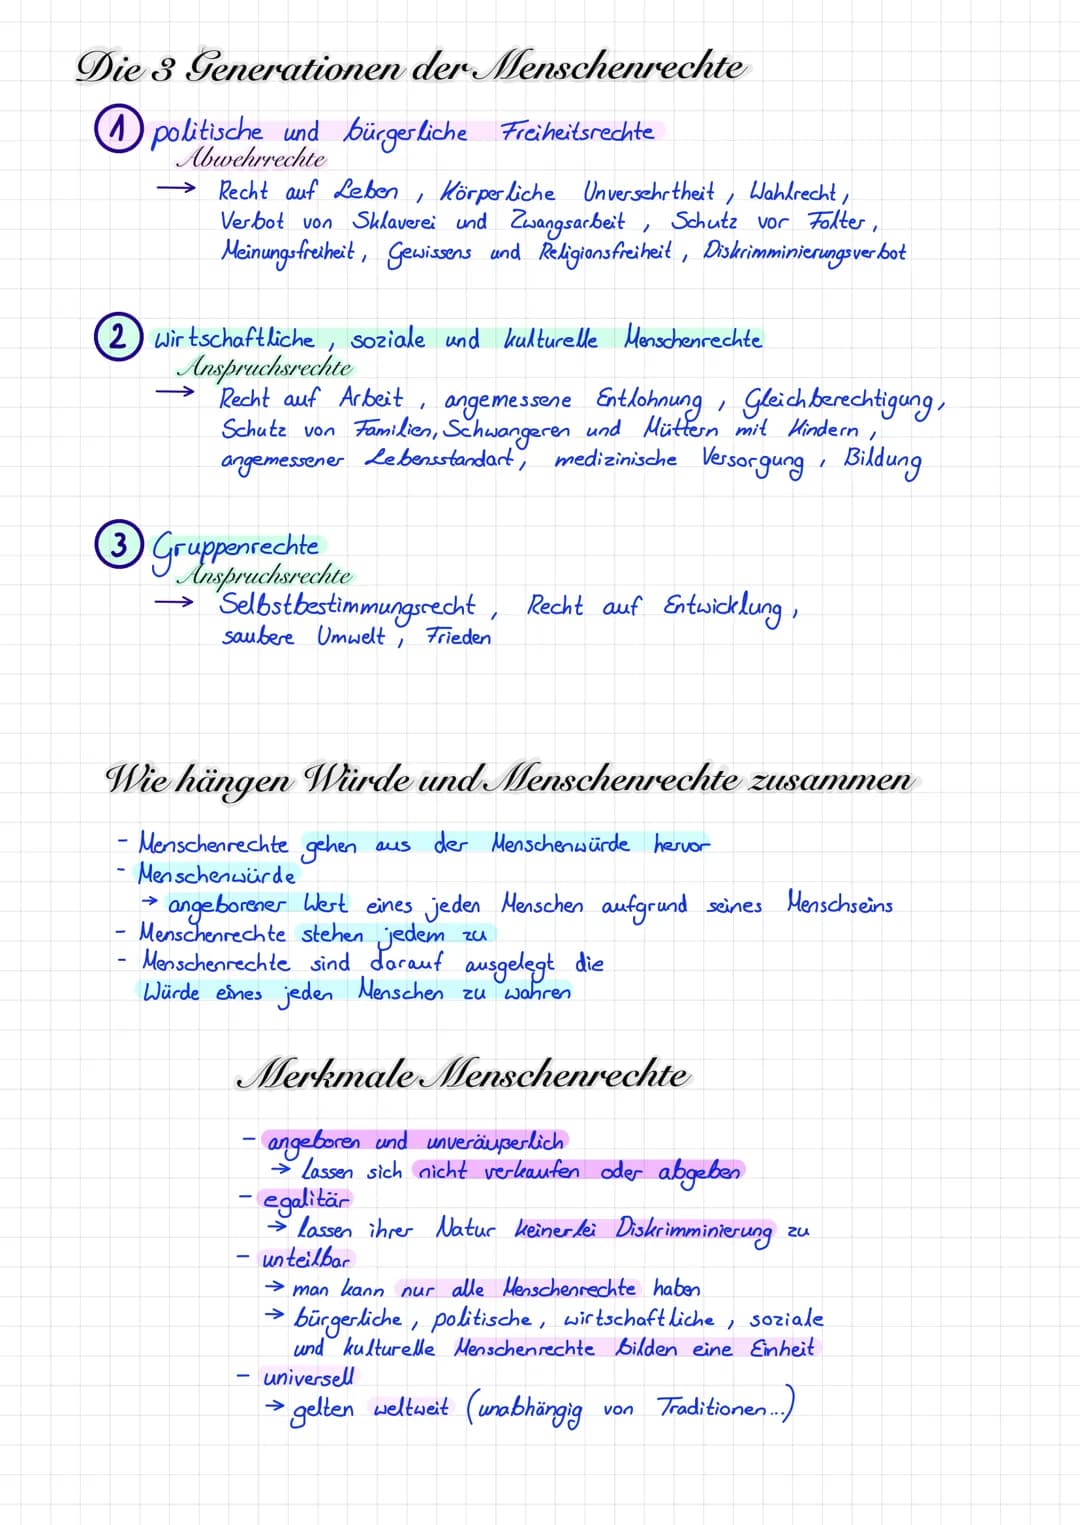 Die 3 Generationen der Menschenrechte
1 politische und bürgerliche Freiheitsrechte
Abwehrrechte
→ Recht auf Leben, Körperliche Unversehrtheit, Wahlrecht,
Verbot von Sklaverei und Zwangsarbeit, Schutz vor Folter,
Meinungsfreiheit, Gewissens und Religionsfreiheit, Diskrimminierungsverbot
2 wirtschaftliche, soziale und kulturelle Menschenrechte
Anspruchsrechte
→ Recht auf Arbeit, angemessene Entlohnung, Gleichberechtigung,
Schutz von Familien, Schwangeren und Müttern mit Kindern,
angemessener Lebensstandart, medizinische Versorgung, Bildung
3 Gruppenrechte
Anspruchsrechte
→ Selbstbestimmungsrecht, Recht auf Entwicklung,
saubere Umwelt, Frieden
Wie hängen Würde und Menschenrechte zusammen
- Menschenrechte gehen aus der Menschenwürde hervor
- Menschenwürde
→ angeborener Wert eines jeden Menschen aufgrund seines Menschseins
- Menschenrechte stehen jedem zu
- Menschenrechte sind darauf ausgelegt die
Würde eines jeden Menschen zu wahren
Merkmale Menschenrechte
- angeboren und unveräußerlich
→ Lassen sich nicht verkaufen oder abgeben
- egalitär
→ Lassen ihrer Natur keinerlei Diskrimminierung zu
- unteilbar
→ man kann nur alle Menschenrechte haben
→ bürgerliche, politische, wirtschaftliche, soziale
und kulturelle Menschenrechte bilden eine Einheit
- universell
→ gelten weltweit (unabhängig von Traditionen...)